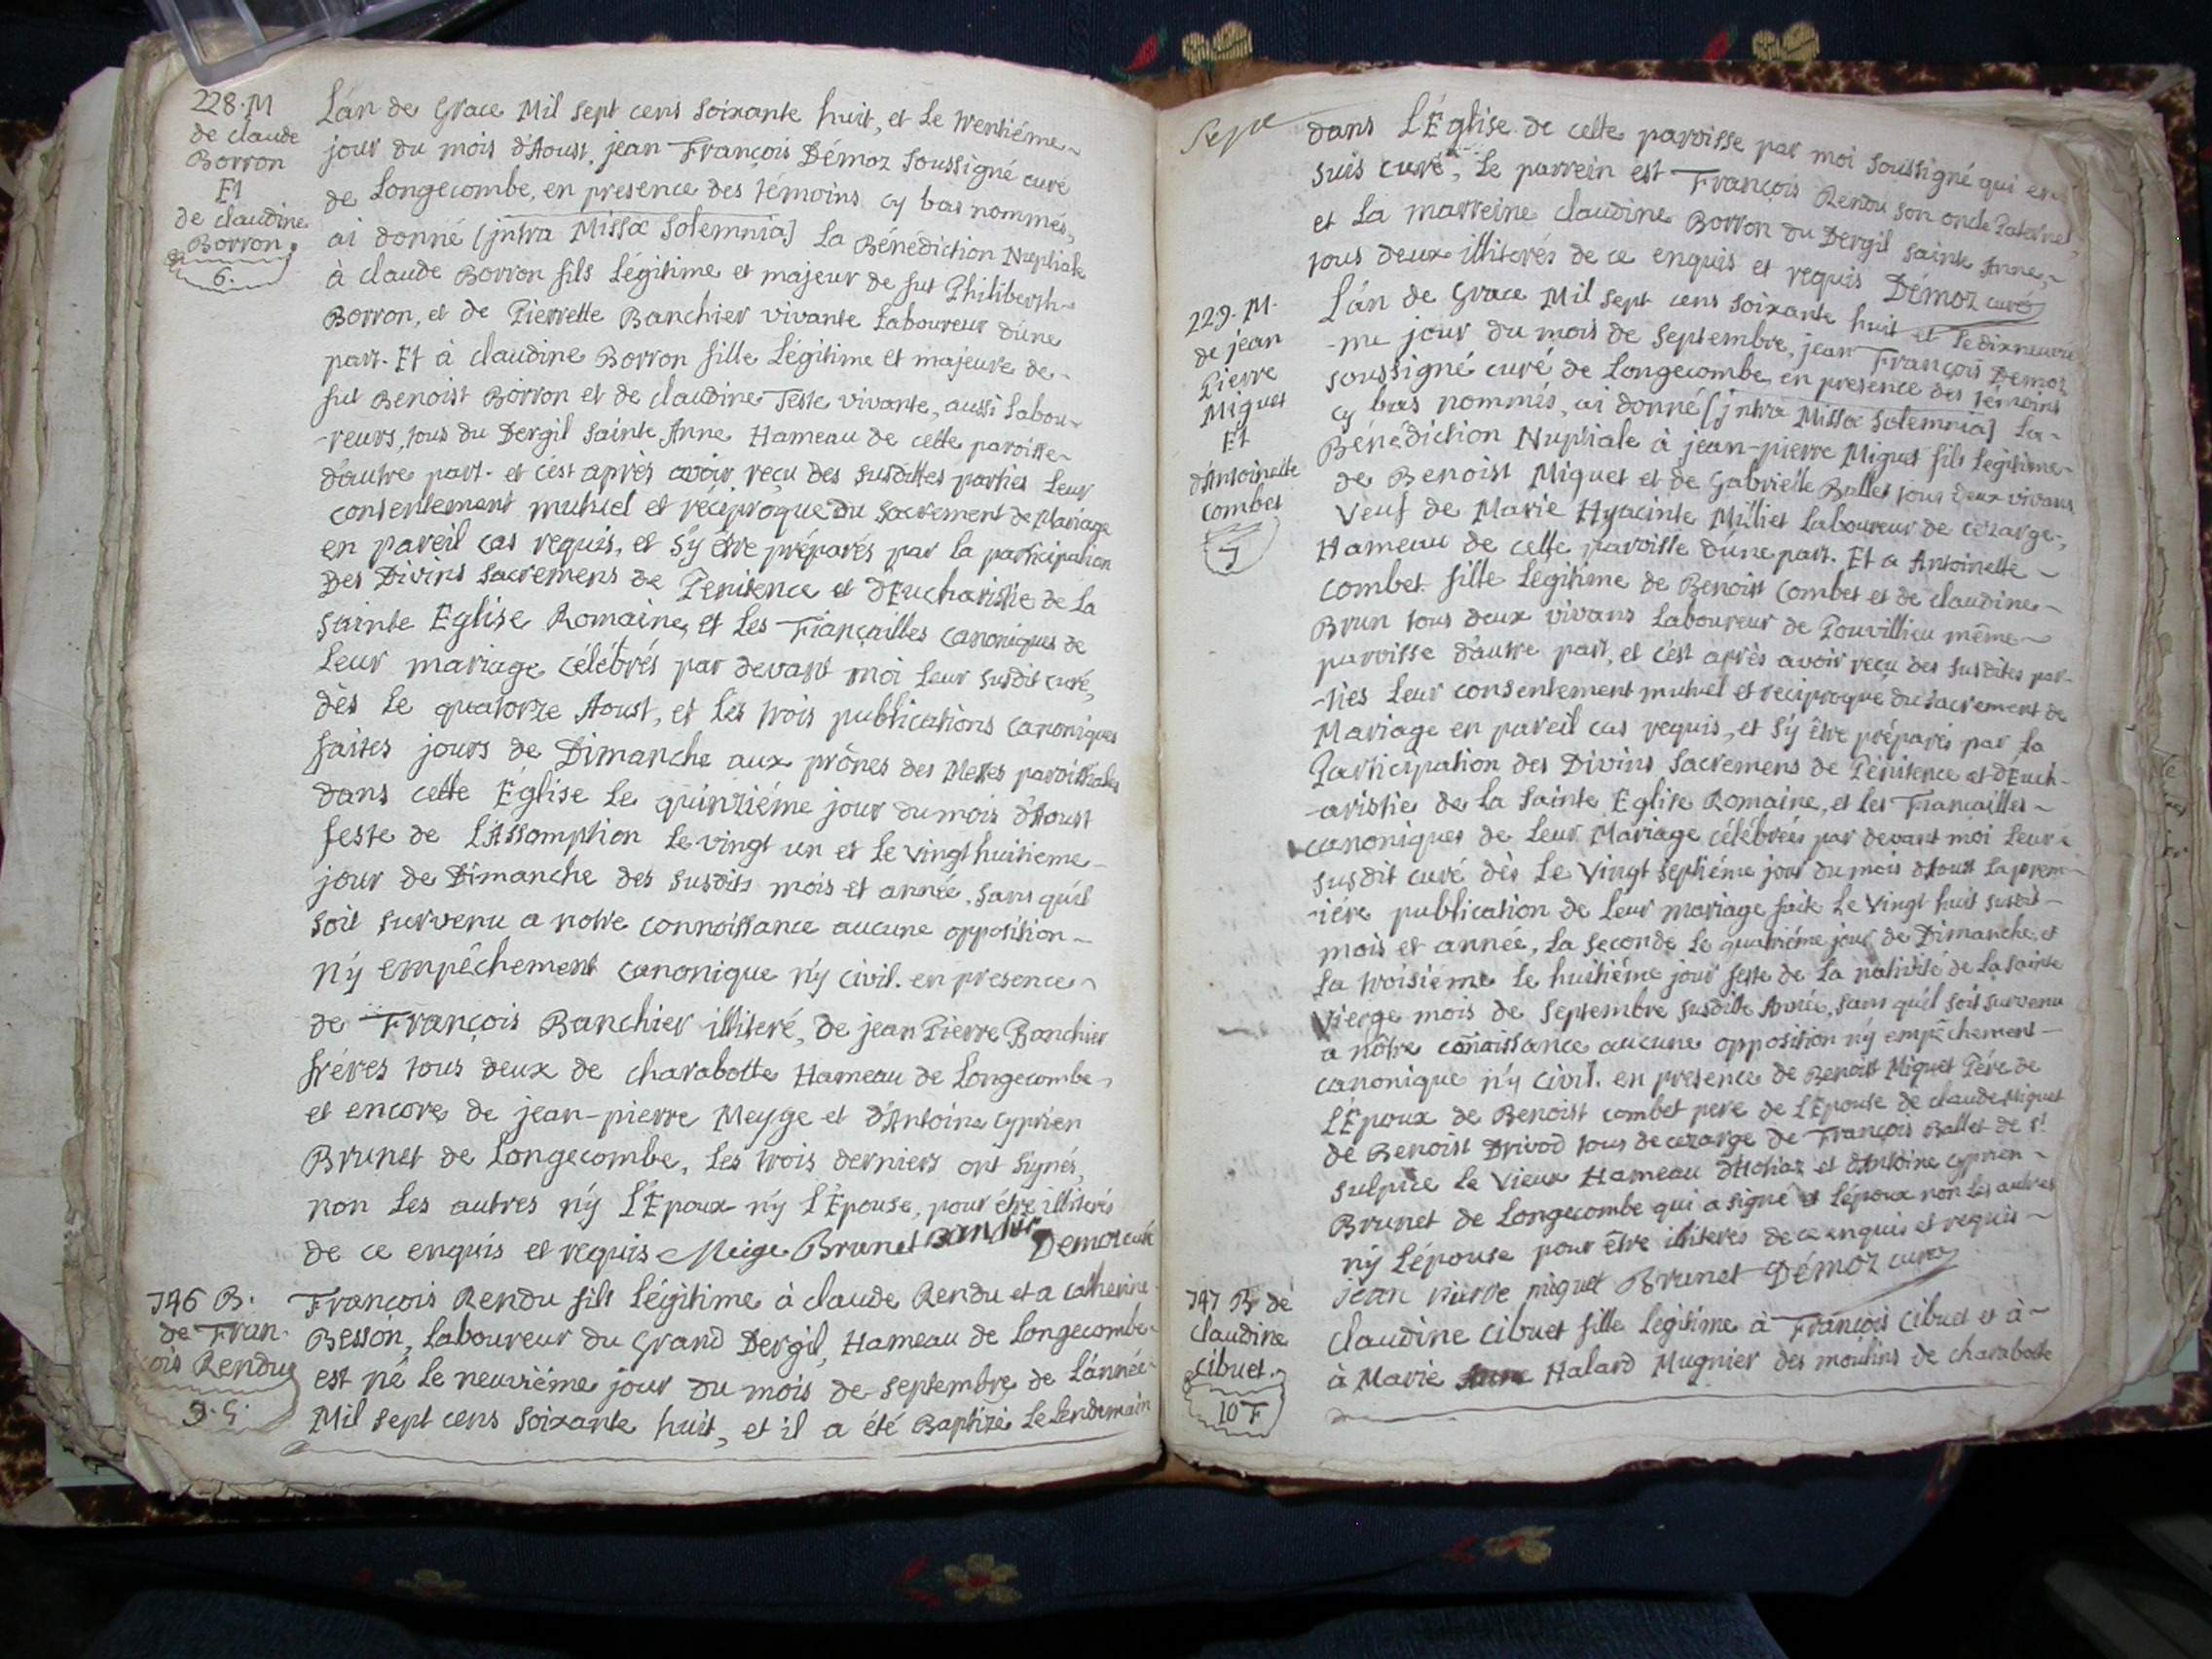 228. M
de claude
Borron
Et
de claudine
Borron.
6.
L'an de Grace Mil sept cens soixante huit, et le trentiéme
jour du mois d'Aoust, jean François Démoz soussigné curé
de Longecombe, en presence des témoins cy bas nommés,
ai donné (jntra Missæ solemnia) La Bénédiction Nuptiale
à claude Borron fils Légitime et majeur de fut Philiberth
Borron, et de Pierrette Banchier vivante Laboureur d'une
part. Et à claudine Borron fille Légitime et majeure de
fut Benoist Borron et de claudine Teste vivante, aussi Labou-
-reurs, tous du Dergil sainte Anne Hameau de cette paroisse
d'autre part. et c'est après avoir reçu des susdittes parties Leur
consentement mutuel et réciproque du sacrement de Mariage
en pareil cas requis, et s'y être préparés par la participation
Des Divins sacremens de Penitence et d'Eucharistie de La
sainte Eglise Romaine, et Les Fiançailles canoniques de
Leur mariage célébrés par devant moi Leur susdit curé,
dès Le quatorze Aoust, et Les trois publications canoniques
faites jours de Dimanche aux prônes des Messes paroissiales
dans cette Église Le quinziéme jour du mois d'Aoust
feste de L'Assomption Le vingt un et Le vingt huitieme
jour de Dimanche des susdits mois et année, sans qu'il
soit survenu a notre connoissance aucune opposition
n'y empêchement canonique n'y civil. en presence
de François Banchier illiteré, de jean Pierre Banchier
fréres tous deux de charabotte Hameau de Longecombe
et encore de jean-pierre Meyge et d'Antoine cyprien
Brunet de Longecombe, Les trois derniers ont signés,
non Les autres n'y L'Epoux n'y L'Epouse, pour étre illiterés
de ce enquis et requis Meige Brunet Démoz curé
746 B.
de Fran-
ois Rendu
François Rendu fils Légitime à claude Rendu et a catherine
Besson, Laboureur du Grand Dergil, Hameau de Longecombe
est né Le neuviéme jour du mois de septembre de L'année
Mil sept cens soixante huit, et il a été Baptizé Le Lendemain
Sepe
dans L'Église de cette paroisse par moi soussigné qui en
suis curé, Le parrein est François Rendu son oncle Paternel
et La marreine claudine Borron du Dergil sainte Anne,
tous deux illiterés de ce enquis et requis Démoz curé
229. M.
de jean
Pierre
Miguet
Et
d'Antoinette
combet
7
L'an de Grace Mil sept cens soixante huit et le dixneuvié
-me jour du mois de septembre, jean François Demoz
soussigné curé de Longecombe, en presence des témoins
cy bas nommés, ai donné (jntra Missæ solemnia) La
Bénédiction Nuptiale à jean-pierre Miguet fils Légitime
de Benoist Miguet et de Gabrielle Ballet tous deux vivans
Veuf de Marie Hyacinte Milliet Laboureur de cezarge,
Hameau de cette paroisse d'une part. Et a Antoinette
combet fille Légitime de Benoist Combet et de claudine
Brun tous deux vivans Laboureur de Pouvillieu même
paroisse d'autre part, et c'est après avoir reçu des susdites par-
-ties Leur consentement mutuel et réciproque du sacrement de
Mariage en pareil cas requis, et s'y être préparés par La
Participation des Divins sacremens de Pénitence et d'Euch-
-aristie de La sainte Eglise Romaine, et les Fiançailles
canoniques de Leur Mariage célébrées par devant moi Leur
susdit curé dès Le Vingt septiéme jour du mois d'Aoust La prem-
-iére publication de Leur mariage faite Le Vingt huit susdit
mois et année, La seconde Le quatriéme jour de Dimanche, et
La troisieme le huitiéme jour feste de La nativité de La sainte
Vierge mois de septembre susditte Année, sans qu'il soit survenu
a nôtre coñaissance aucune opposition n'y empêchement
canonique n'y civil. en presence de Benoist Miguet Pére de
L'Époux de Benoist combet pere de L'Epouse de claude Miguet
de Benoist Drivod tous de cezarge de François Ballet de st
sulpice Le Vieux Hameau d'Hotiaz et d'Antoine cyprien
Brunet de Longecombe qui a signé et L'époux non Les autres
n'y L'épouse pour être illiteres de ce enquis et requis
jean pierre miguet Brunet Démoz curé
747 B de
claudine
Cibuet.
10 F
claudine Cibuet fille Légitime à François Cibuet et à
à Marie Halard Mugnier des moulins de charabotte